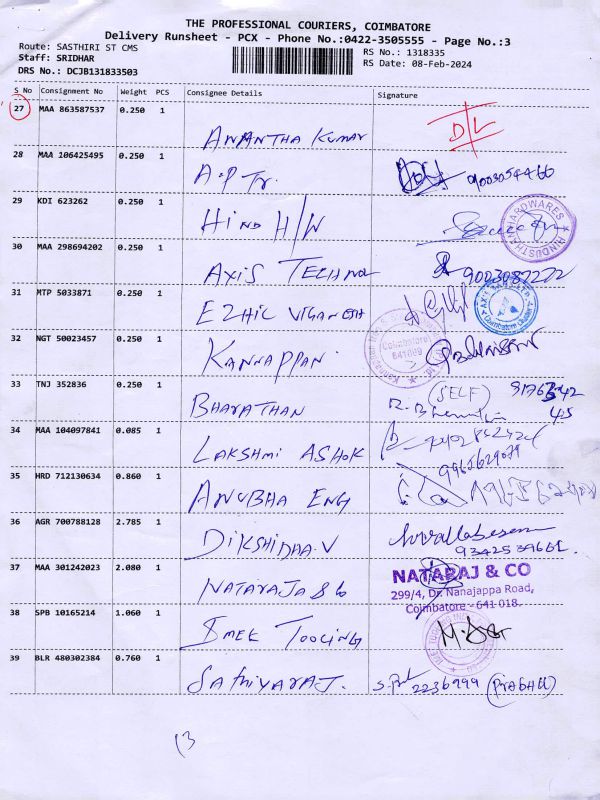 THE PROFESSIONAL COURIERS, COIMBATORE
Delivery Runsheet - PCX - Phone No.:0422-3505555 - Page No.:3
Route: SASTHIRI ST CMS
RS No.: 1318335
Staff: SRIDHAR
RS Date: 08-Feb-2024
DRS No.: DCJB131833503
S No Consignment No Weight PCS Consignee Details Signature
27 MAA 863587537 0.250 1
ANANTHA KUMAR D/L
28 MAA 106425495 0.250 1
A.P Tr. 9003054466
29 KDI 623262 0.250 1
HIND H/W HINDUSTHAN HARDWARES
30 MAA 298694202 0.250 1
AXIS TECHNO 9003087272
31 MTP 5033871 0.250 1
EZHIL VIGANESH
32 NGT 50023457 0.250 1
KANNAPPAN Coimbatore 641009
33 TNJ 352836 0.250 1
BHARATHAN (SELF)
34 MAA 104097841 0.085 1
LAKSHMI ASHOK
35 HRD 712130634 0.860 1
ANUBHA ENG
36 AGR 700788128 2.785 1
DIKSHIDHA.V
37 MAA 301242023 2.080 1
NATARAJ & CO
299/4, Dr. Nanajappa Road,
Coimbatore - 641 018.
NATARAJA & Co
38 SPB 10165214 1.060 1
SMEE TOOLING
39 BLR 480302384 0.760 1
SATHIYARAJ. 2236999 (PRABHU)
13